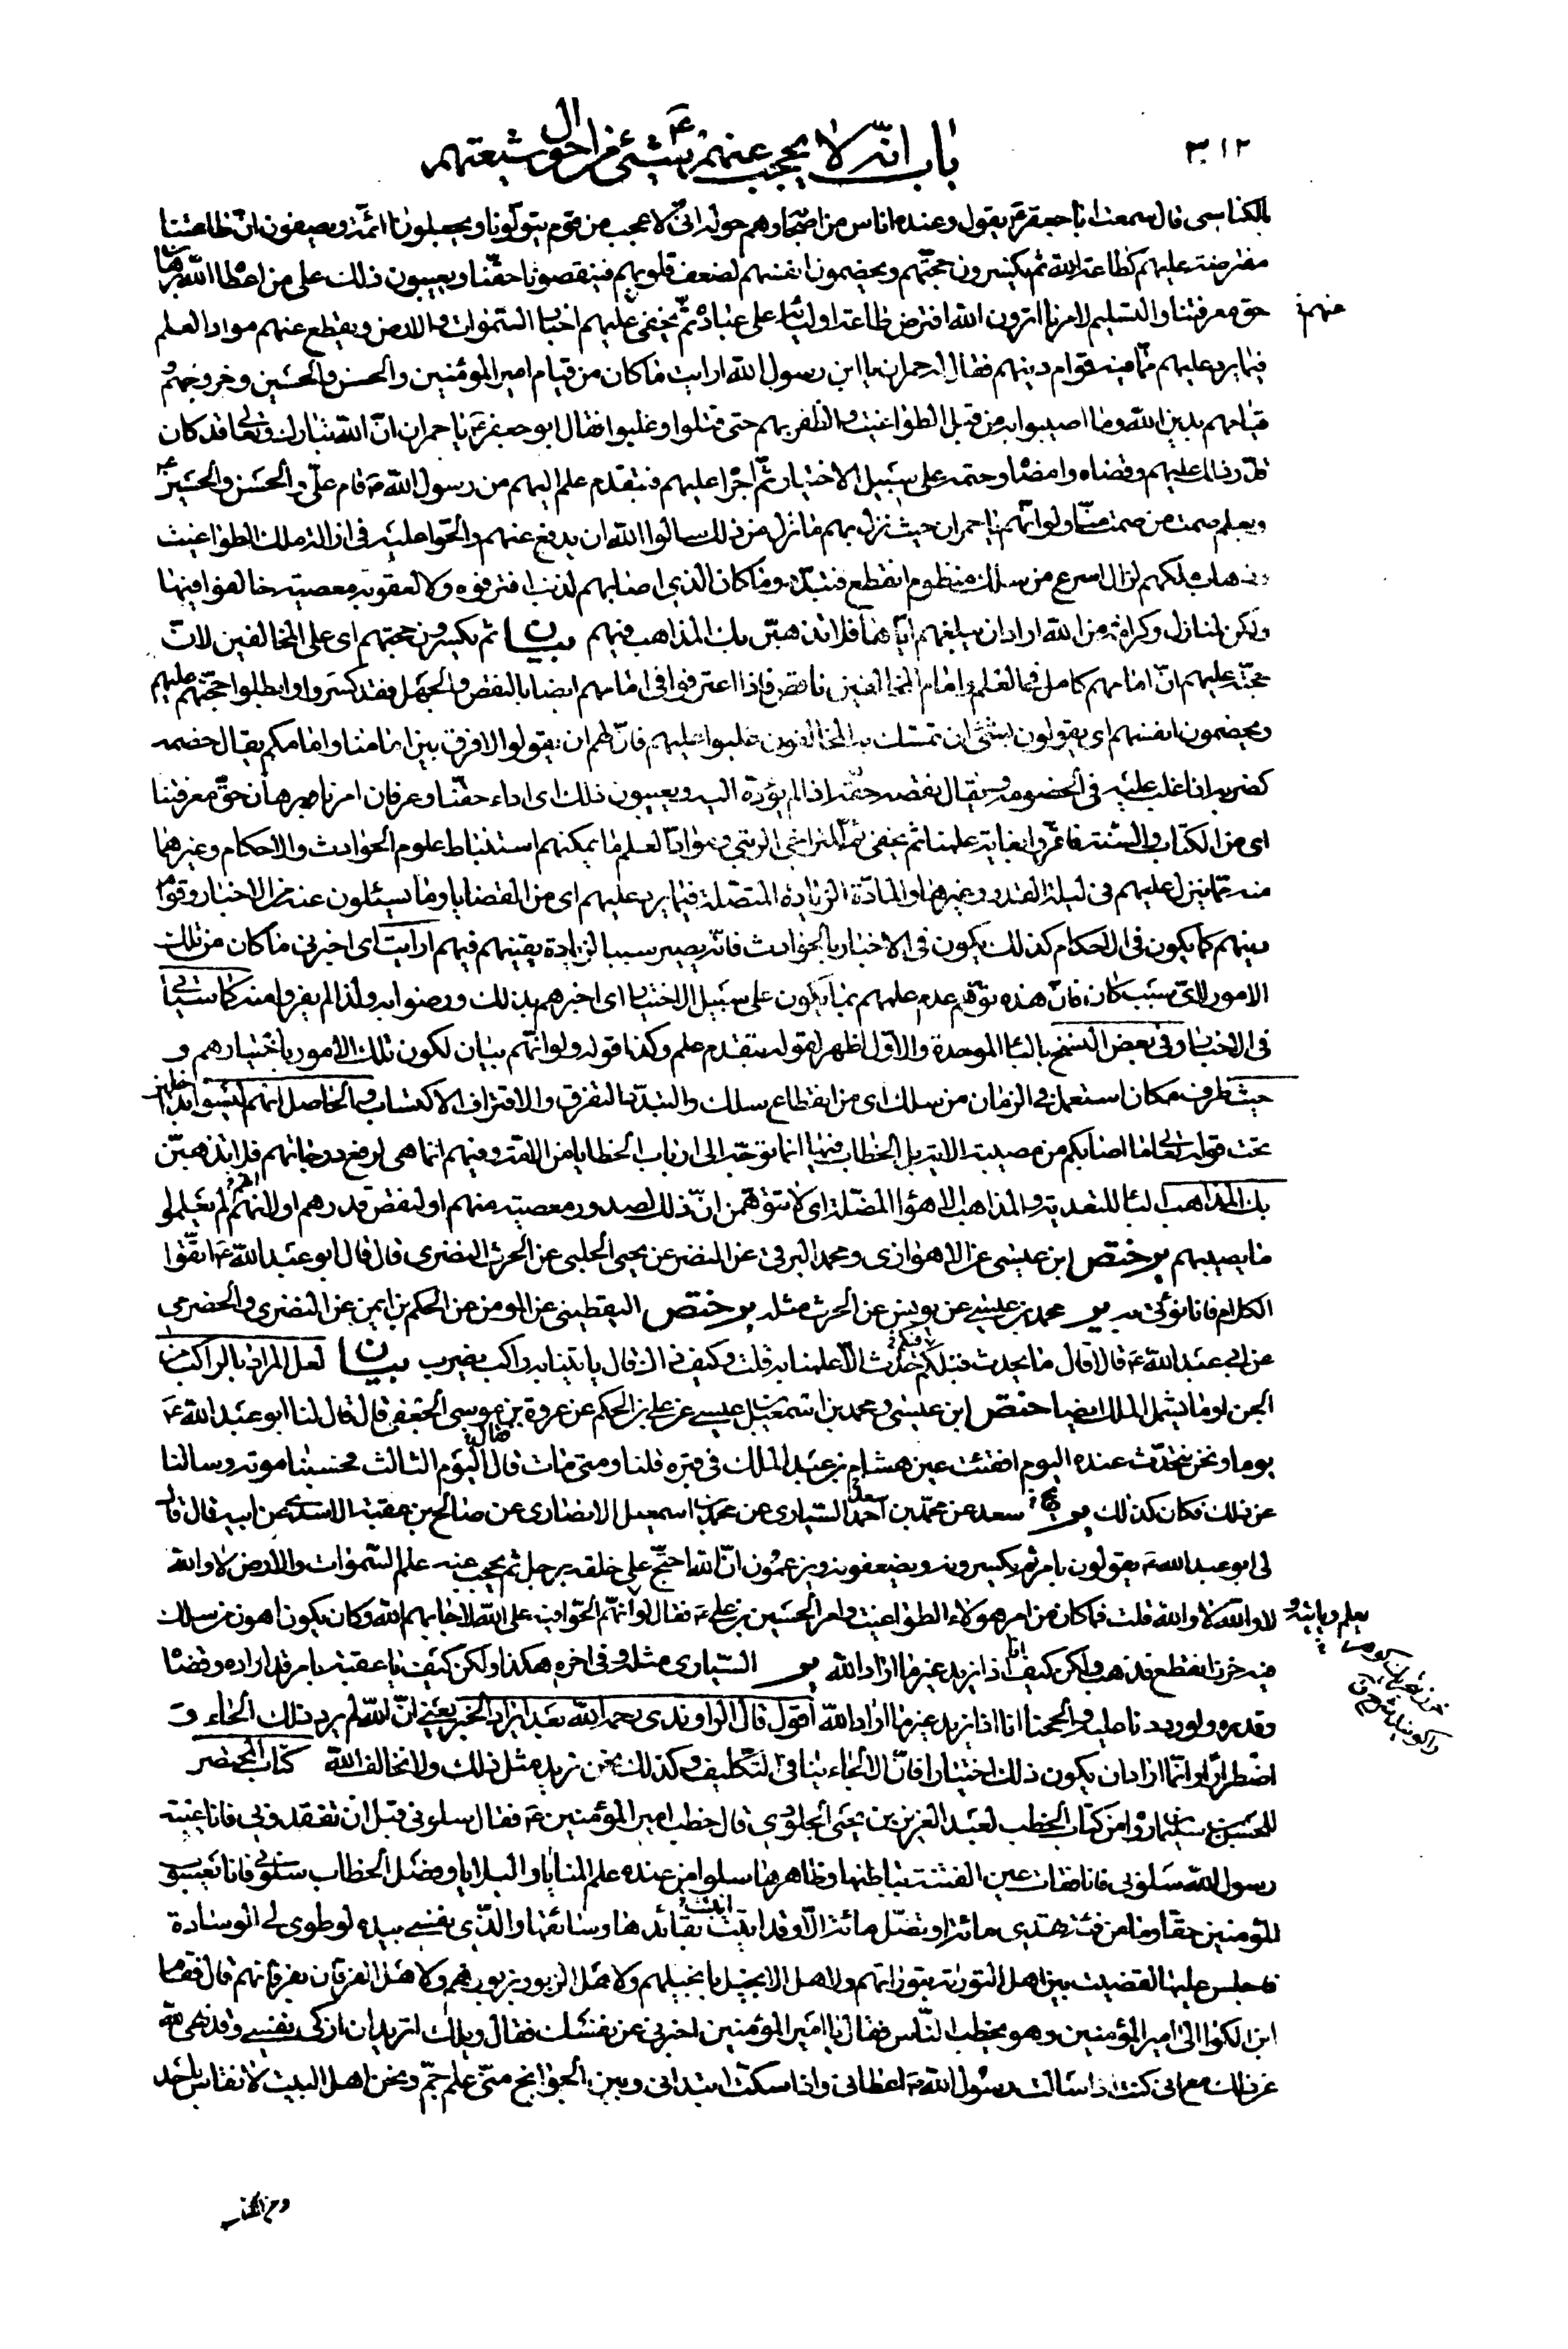 ٣١٢
باب انّه لا يحجب عنهم ع شيئ من احوال شيعتهم
الكناسى قال سمعت ابا جعفر ع يقول وعنده اناس من اصحابه وهم حوله انى لاعجب من قوم يتولّونا ويجعلونا ائمّة ويصفون انّ طاعتنا
مفترضة عليهم كطاعة الله ثم يكسرون حجتهم ويخصمون انفسهم لضعف قلوبهم فينقصونا حقّنا ويعيبون ذلك على من اعطاه الله برهان
حق معرفتنا والتسليم لامرنا اترون الله افترض طاعة اوليائه على عباده ثمّ يخفى عليهم اخبار السّموات والارض ويقطع عنهم مواد العلم
عنهم
فيما يرد عليهم ممّا فيه قوام دينهم فقال له حمران يا ابن رسول الله ارايت ما كان من قيام امير المؤمنين والحسن والحسين وخروجهم و
قيامهم بدين الله وما اصيبوا به من قبل الطواغيت والظفر بهم حتى قتلوا وغلبوا فقال ابو جعفر ع يا حمران انّ الله تبارك وتعالى قد كان
قدّر ذلك عليهم وقضاه وامضاه وحتمه على سبيل الاختيار ثمّ اجراه عليهم فبتقدم علم اليهم من رسول الله ص قام علىّ والحسن والحسين ع
وبعلم صمت من صمت منّا ولو انّهم يا حمران حيث نزل بهم ما نزل من ذلك سالوا الله ان يدفع عنهم والحّوا عليه فى ازالة ملك الطواغيت
وذهاب ملكهم لزال اسرع من سلك منظوم انقطع فتبدّد وما كان الذي اصابهم لذنب اقترفوه ولا لعقوبة معصية خالفوا فيها
ولكن لمنازل وكرامة من الله اراد ان يبلغهم ايّاها فلا تذهبنّ بك المذاهب فيهم بيان ثم يكسرون حجتهم اى على المخالفين لانّ
حجّته عليهم انّ امامهم كامل فى العلم وامام المخالفين ناقص فاذا اعترفوا فى امامهم ايضا بالنقص والجهل فقد كسروا وابطلوا حجتهم عليهم
ويخصمون انفسهم اى يقولون بشئ ان تمسّك به المخالفون غلبوا عليهم فانّ لهم ان يقولوا لا فرق بين امامنا وامامكم يقال خصمه
كضربه اذا غلب عليه فى الخصومة ويقال نقصه حقّه اذا لم يؤدّه اليه ويعيبون ذلك اى اداء حقّنا وعرفان امرنا برهان حقّ معرفتنا
اى من الكتاب والسّنة فاقرّوا بغاية علمنا ثم يخفى ثمّ للتراخى الرتبي ومواد العلم ما يمكنهم استنباط علوم الحوادث والاحكام وغيرهما
منه ممّا ينزل عليهم فى ليلة القدر وغيرها والمادّة الزيادة المتصلة فيما يرد عليهم اى من القضايا وما يسئلون عنه من الاخبار وقوام
دينهم كما يكون فى الاحكام كذلك يكون فى الاخبار بالحوادث فانّه يصير سببا لزيادة يقينهم فيهم ارايت اى اخبرنى ما كان من تلك
الامور لاىّ سبب كان فانّ هذه توهّم عدم علمهم بما يكون على سبيل الاختيار اى اخبرهم بذلك ورضوا به ولذا لم يفرّوا منه كما سياتى
فى الاخبار وفى بعض النسخ بالباء الموحدة والاوّل اظهر لقوله بتقدم علم وكذا قوله ولو انّهم بيان لكون تلك الامور باختيارهم و
حيث ظرف مكان استعمل فى الزمان من سلك اى من انقطاع سلك والتبدّد التفرّق والاقتراف الاكتساب والحاصل انهم ليسوا بداخلين
تحت قوله تعالى ما اصابكم من مصيبة الاية بل الخطاب فيها انما توجّه الى ارباب الخطايا من الامّة وفيهم انما هى لرفع درجاتهم فلا تذهبنّ
بك المذاهب الباء للتعدية والمذاهب الاهواء المضلّة اى لا تتوهّمن انّ ذلك لصدور معصية منهم او لنقص قدرهم او لانهم لم يعلموا
ما يصيبهم ير ختص ابن عيسى عن الاهوازى ومحمد البرقى عن النضر عن يحيى الحلبى عن الحرث النضرى قال قال ابو عبد الله ع اتّقوا
الكلام فانا نؤتى به ير محمد بن عيسى عن يونس عن الحرث مثله ير ختص اليقطينى عن المؤمن عن الحكم بن ايمن عن النضرى والحضرمى
عن ابى عبد الله ع قالا قال ما يحدث قبلكم حدث الّا علمنا به قلت وكيف ذاك قال ياتينا به راكب يضرب بيان لعل المراد بالراكب من
الجن او ما يشمل الملك ايضا ختص ابن عيسى ومحمد بن اسمعيل بن عيسى عن على بن الحكم عن عروة بن موسى الجعفى قال قال لنا ابو عبد الله ع
يوما ونحن نتحدّث عنده اليوم افقئت عين هشام بن عبد الملك فى قبره قلنا ومتى مات قال اليوم الثالث فحسبنا موته وسالنا
عن ذلك فكان كذلك ير سعد عن محمّد بن احمد السيّارى عن محمد بن اسمعيل الانصارى عن صالح بن عقبة الاسدى عن ابيه قال قال
لى ابو عبد الله ع يقولون بامر ثم يكسرونه ويضعفونه ويزعمون انّ الله احتجّ على خلقه برجل ثم يحجب عنه علم السّموات والارض لا والله
لا والله لا والله قلت فما كان من امر هؤلاء الطواغيت وامر الحسين بن على ع فقال لو انّهم الحّوا فيه على الله لاجابهم الله وكان يكون اهون من سلك
فيه خرز انقطع فذهب ولكن كيف انا اذا نريد غير ما اراد الله ير السّيارى مثله وفى اخره هكذا ولكن كيف يا عقبة بامر قد اراده وقضاه
وقدره ولو ردّدنا عليه والححنا انا اذا نريد غير ما اراد الله اقول قال الراوندى رحمه الله بعد ايراد الخبر يعنى انّ الله لم يرد ذلك الجاء و
اضطرارا وانّما اراد ان يكون ذلك اختيارا فانّ الالجاء ينافى التكليف وكذلك نحن نريد مثل ذلك ولا نخالف الله كتاب المحتضر
للحسن بن سليمان رواه من كتاب الخطب لعبد العزيز بن يحيى الجلودى قال خطب امير المؤمنين ع فقال سلونى قبل ان تفقدونى فانا عيبة
رسول الله سلونى فانا فقات عين الفتنة بباطنها وظاهرها سلوا من عنده علم المنايا والبلايا وفصل الخطاب سلونى فانا يعسوب
المؤمنين حقا وما من فئة تهتدى مائة او تضلّ مائة الّا وقد اتيت بقائدها وسائقها والّذى نفسى بيده لو طوى لى الوسادة
فاجلس عليها لقضيت بين اهل التوراة بتوراتهم ولاهل الانجيل بانجيلهم ولاهل الزبور بزبورهم ولاهل الفرقان بفرقانهم قال فقام
ابن الكوا الى امير المؤمنين وهو يخطب النّاس فقال يا امير المؤمنين اخبرنى عن نفسك فقال ويلك اتريد ان ازكى نفسى وقد نهى الله
عن ذلك مع انى كنت اذا سالت رسول الله ص اعطانى واذا سكتّ ابتدانى وبين الجوانح منّى علم جمّ ونحن اهل البيت لا نقاس باحد